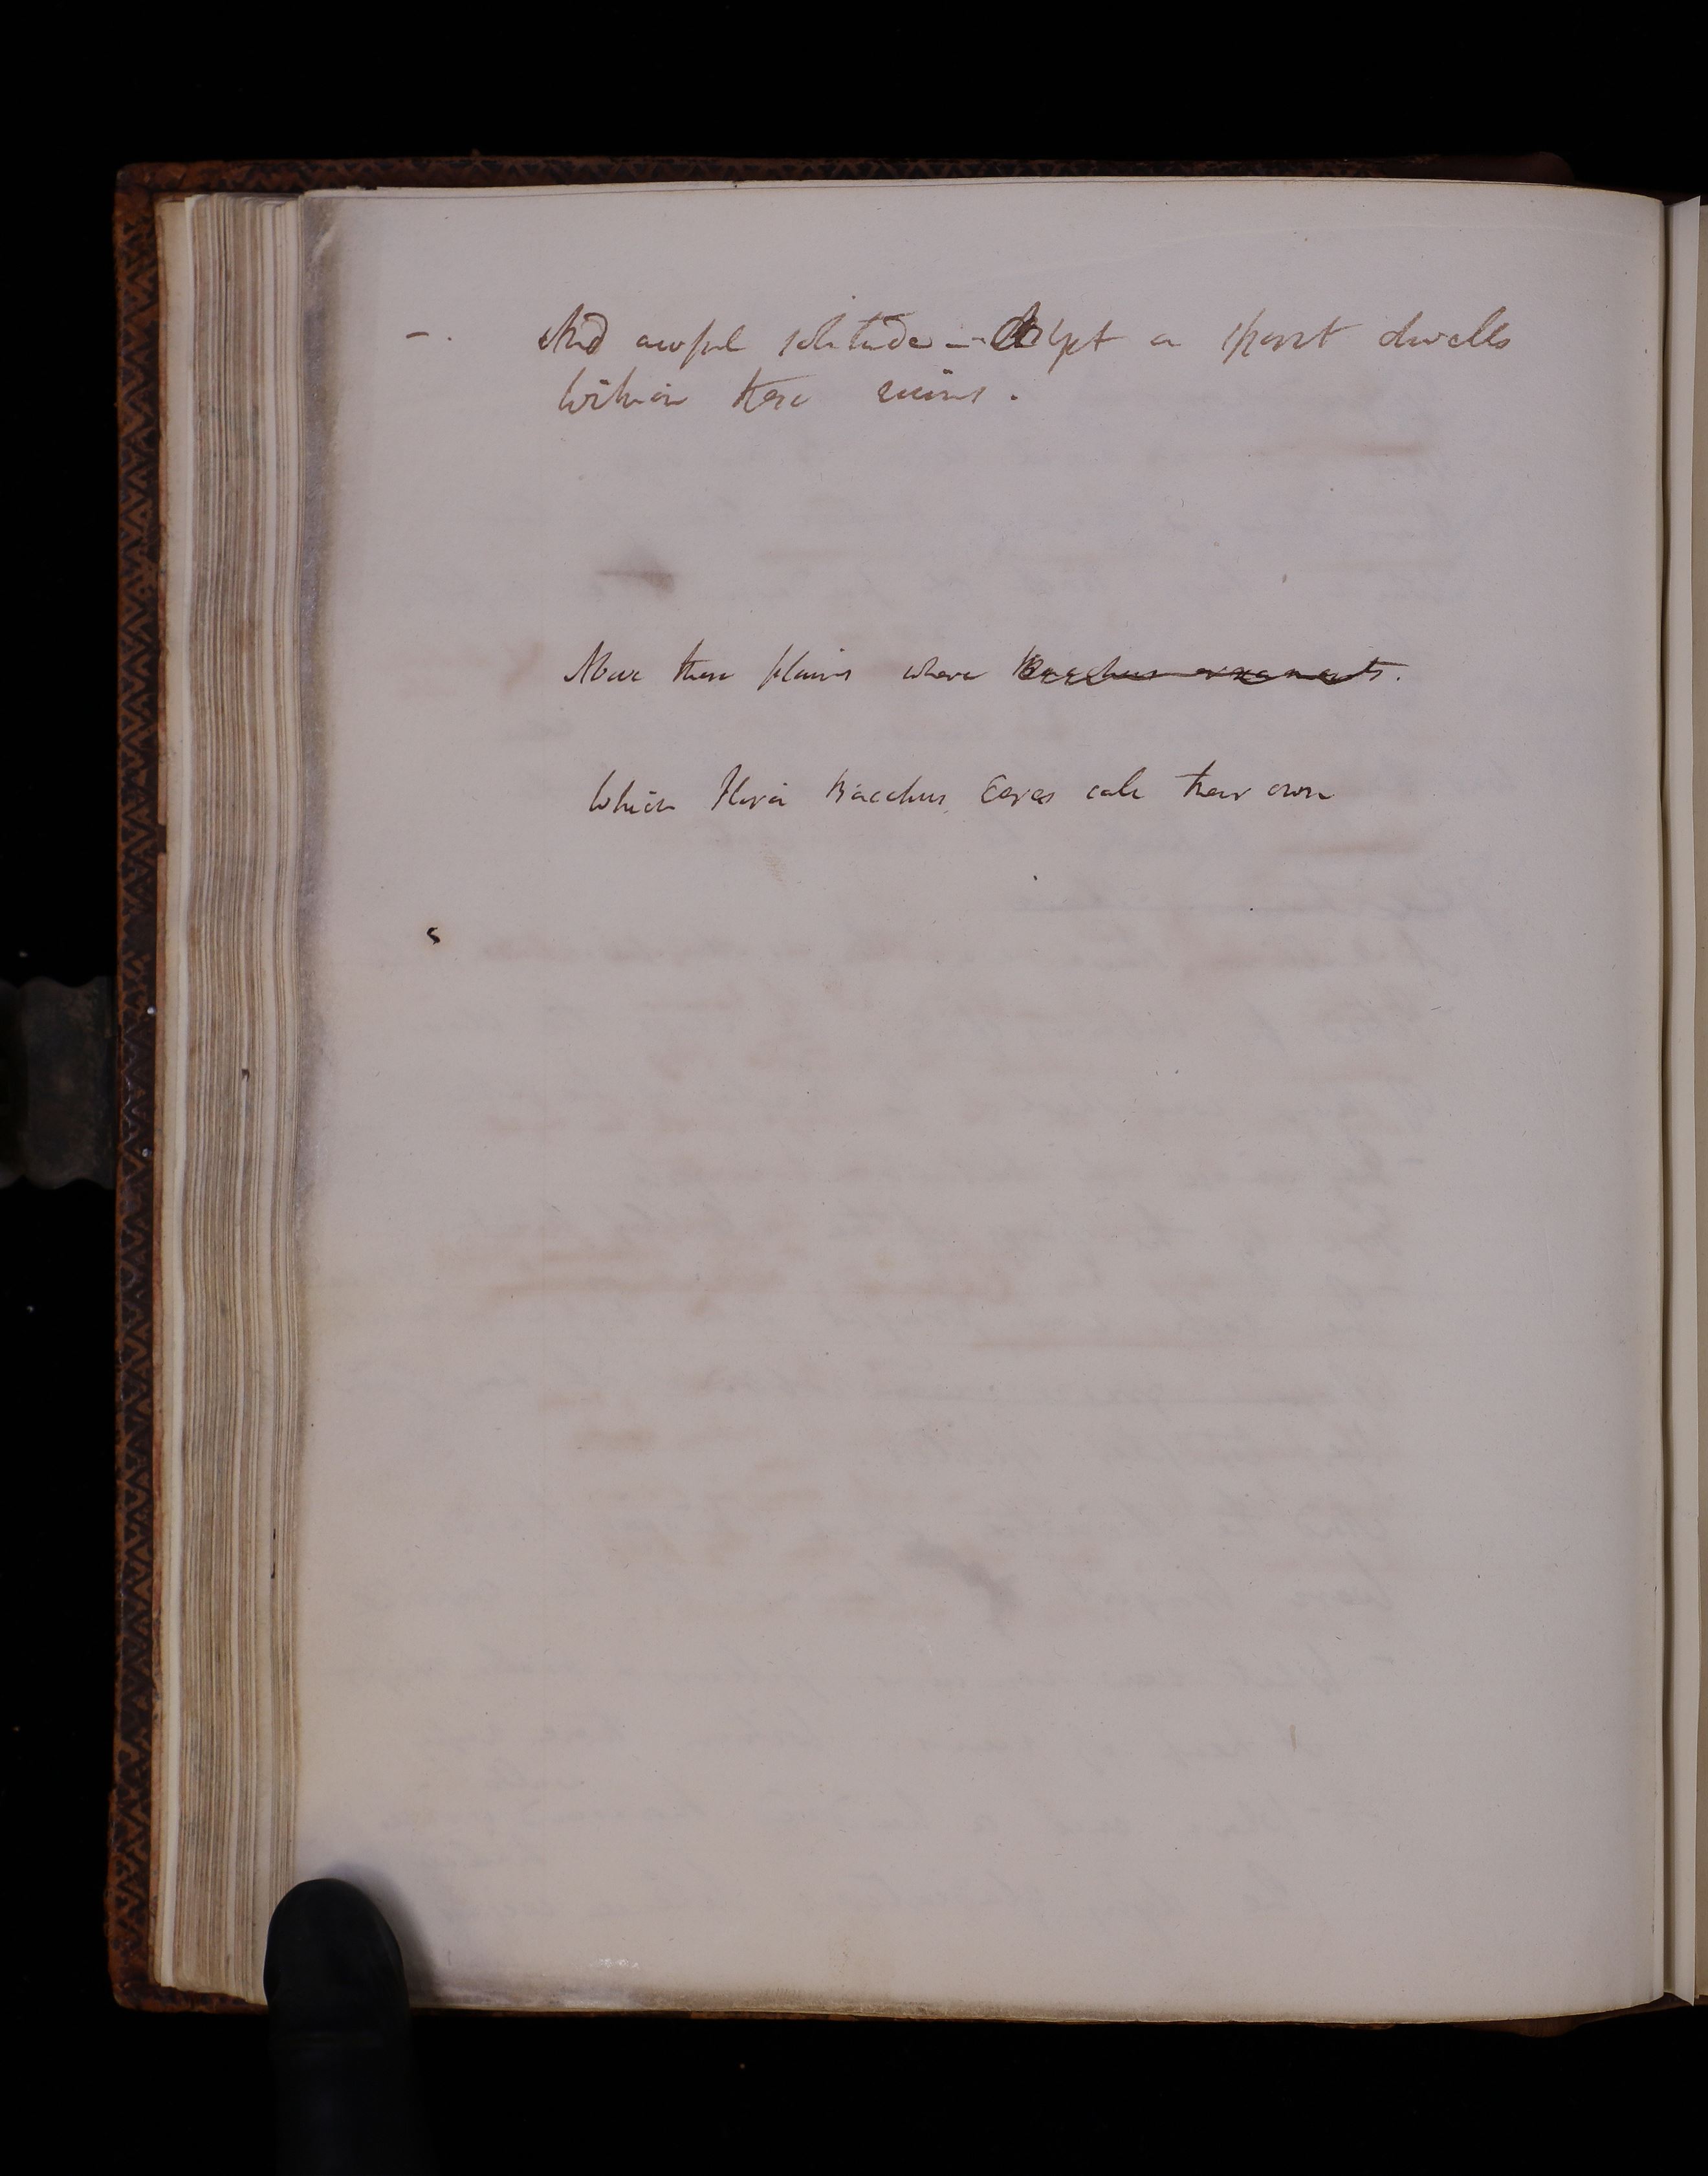 And awful solitude — a spirit dwells
Within these ruins.
Above these plains where Bacchus ornaments.
Which Flora Bacchus Ceres call their own